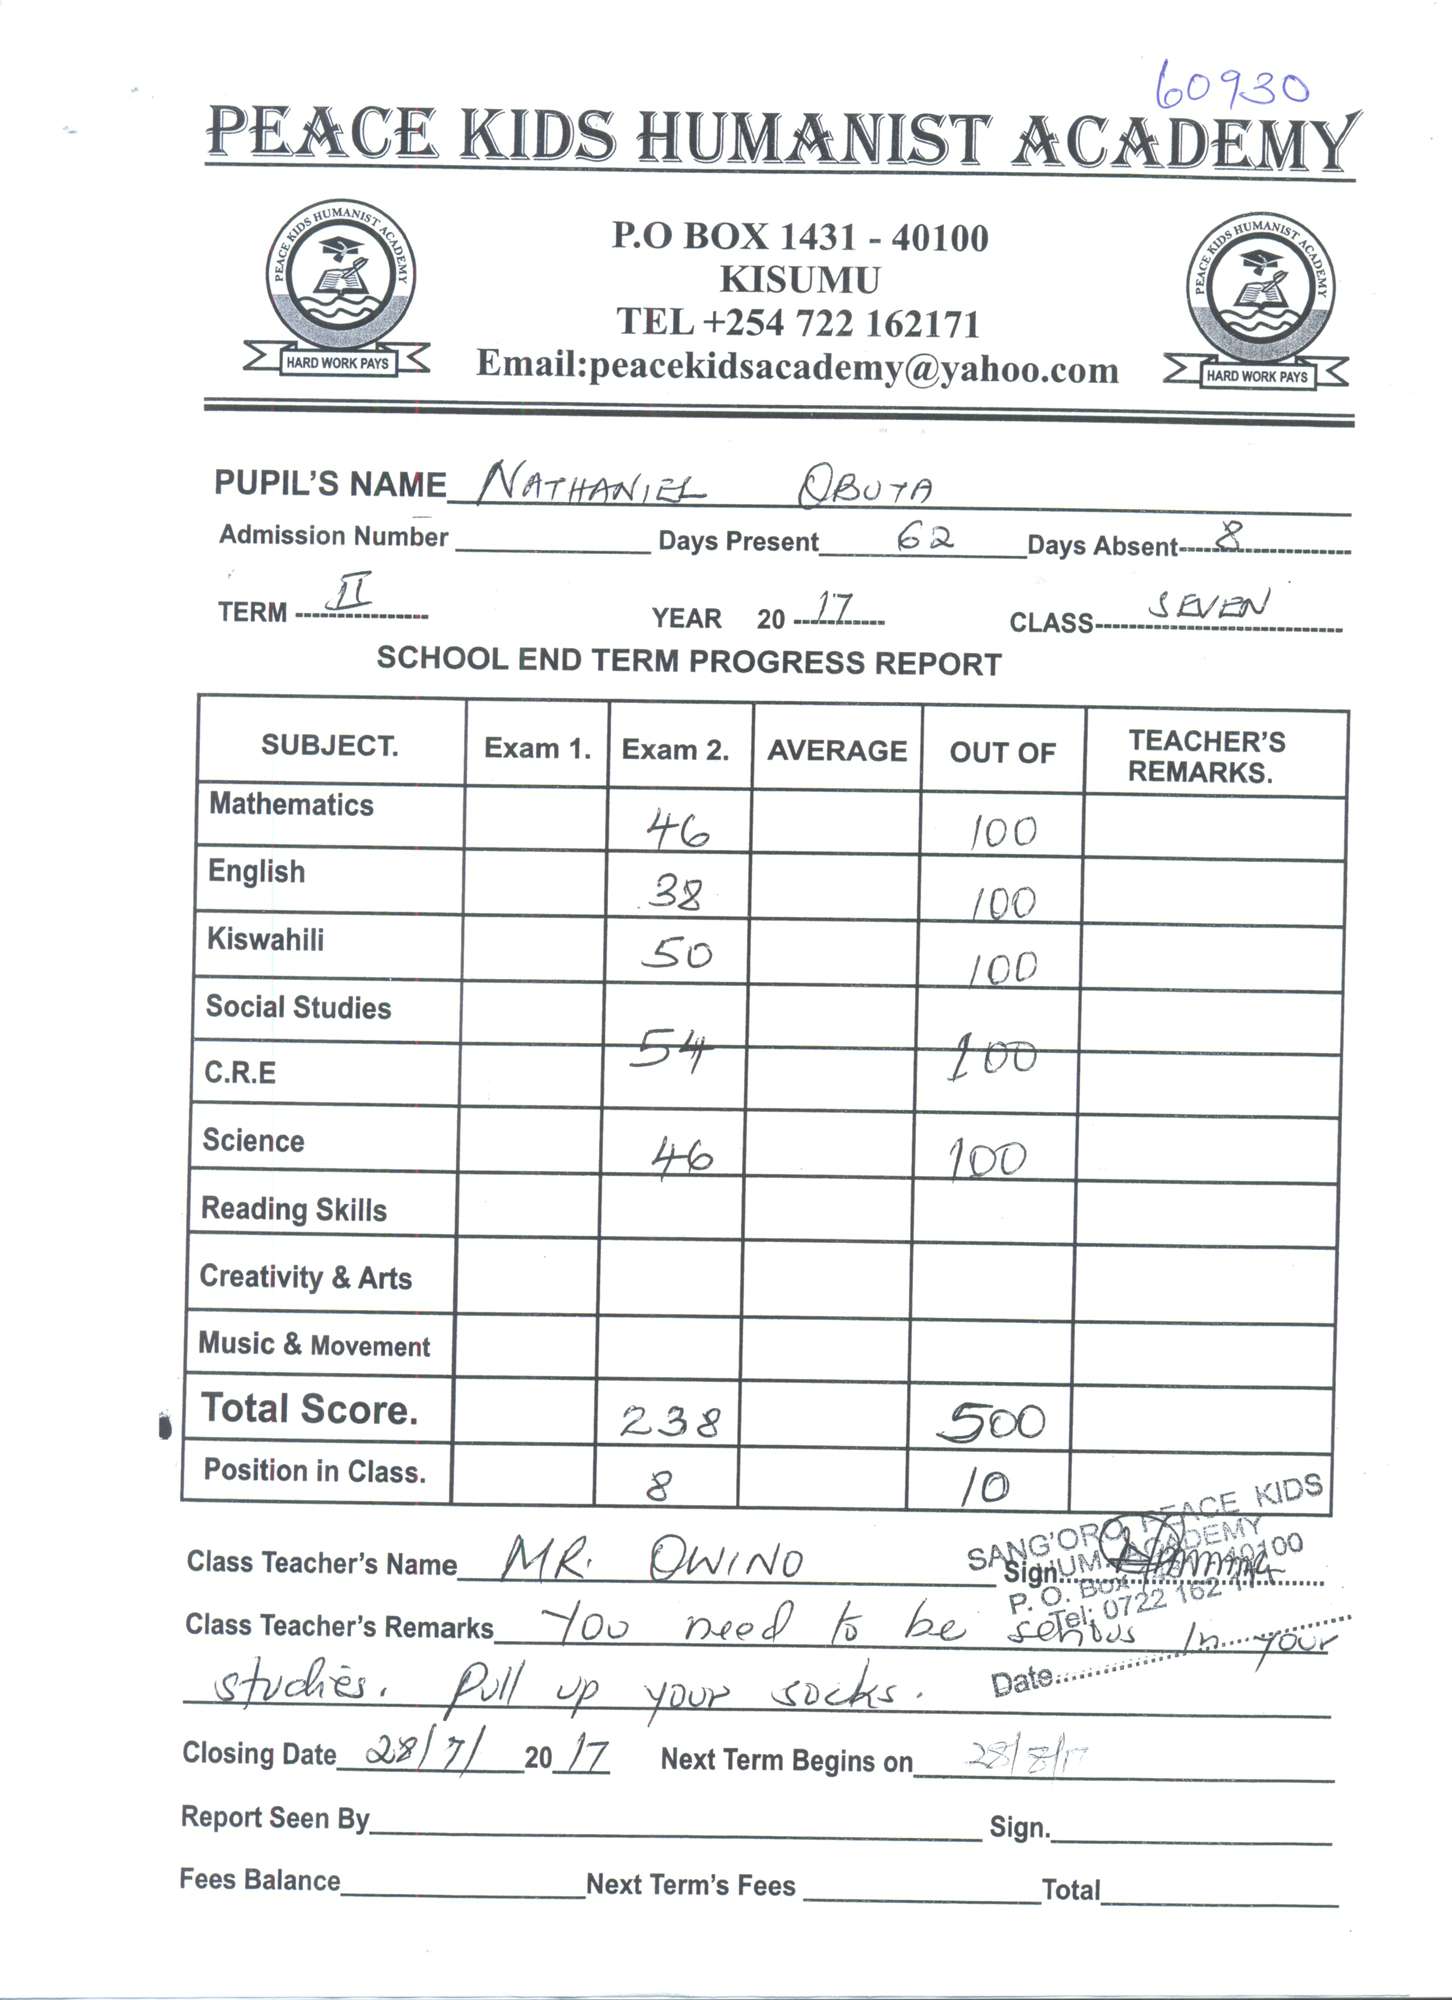 60930
PEACE KIDS HUMANIST ACADEMY
PEACE KIDS HUMANIST ACADEMY
HARD WORK PAYS
P.O BOX 1431 - 40100
KISUMU
TEL +254 722 162171
Email:peacekidsacademy@yahoo.com
PEACE KIDS HUMANIST ACADEMY
HARD WORK PAYS
PUPIL'S NAME NATHANIEL OBUYA
Admission Number Days Present 62 Days Absent 8
TERM II YEAR 20 17 CLASS SEVEN
SCHOOL END TERM PROGRESS REPORT
SUBJECT. Exam 1. Exam 2. AVERAGE OUT OF TEACHER'S REMARKS.
Mathematics 46 100
English 38 100
Kiswahili 50 100
Social Studies
54 100
C.R.E
Science 46 100
Reading Skills
Creativity & Arts
Music & Movement
Total Score. 238 500
Position in Class. 8 10
SANG'ORO PEACE KIDS
ACADEMY
P. O. Box 40100
Tel: 0722 162
Date
Class Teacher's Name MR. OWINO Sign
Class Teacher's Remarks You need to be serious in your
studies. Pull up your socks.
Closing Date 28/7/ 20 17 Next Term Begins on 28/8/17
Report Seen By Sign.
Fees Balance Next Term's Fees Total